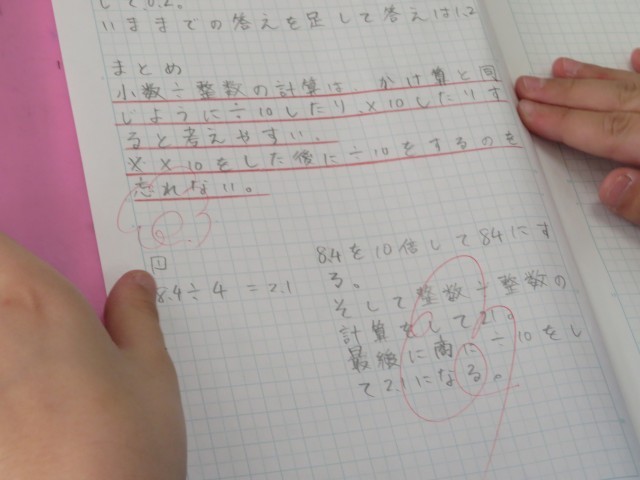 して0.2。
いままでの答えを足して答えは1.2
まとめ
小数÷整数の計算は、かけ算と同
じように÷10したり、×10したりす
ると考えやすい。
※×10をした後に÷10をするのを
忘れない。
1
8.4÷4=2.1
8.4を10倍して84にす
る。
そして整数÷整数の
計算をして21。
最後に商に÷10をし
て2.1になる。